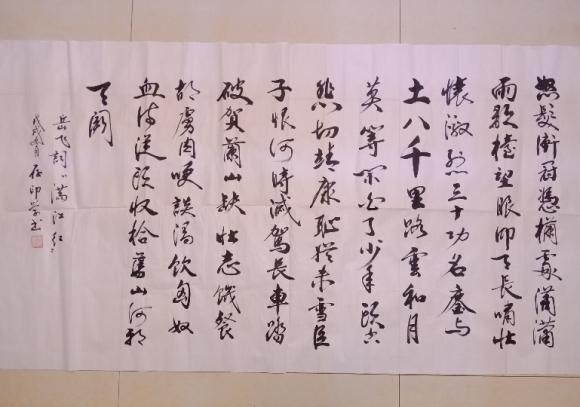 怒髮衝冠憑欄處瀟瀟
雨歇擡望眼仰天長嘯壯
懷激烈三十功名塵與
土八千里路雲和月
莫等閒白了少年頭空
悲切靖康恥猶未雪臣
子恨何時滅駕長車踏
破賀蘭山缺壯志饑餐
胡虜肉咲談渴飲匈奴
血待從頭收拾舊山河朝
天闕
岳飛詞《滿江紅》
戊戌 印學書